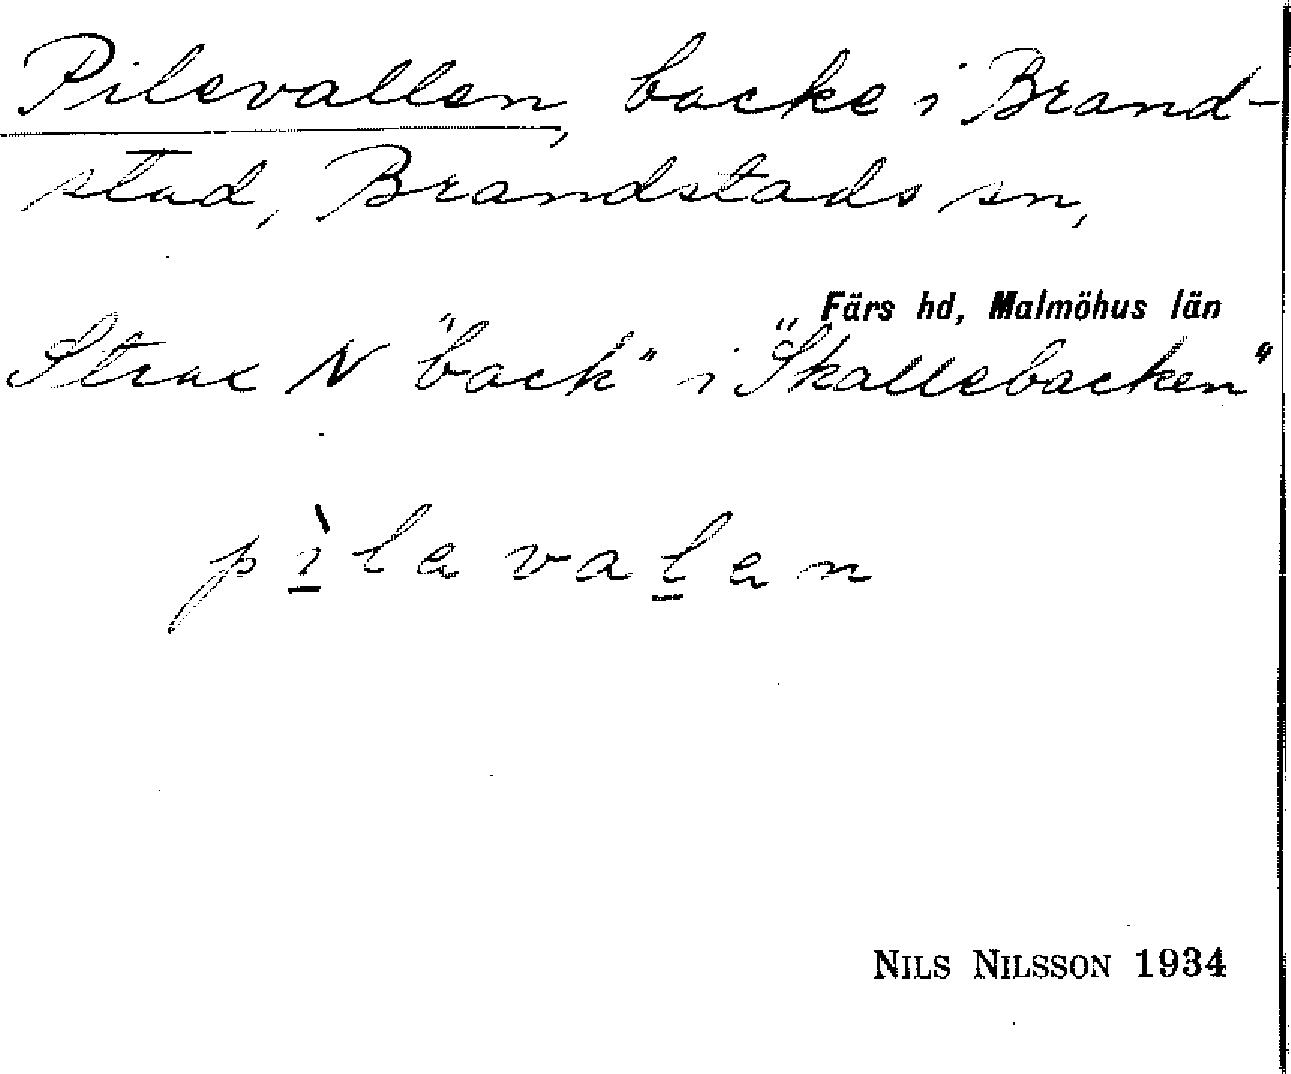 Pilevallen, backe i Brand-
stad, Brandstads sn,
Färs hd, Malmöhus län
Strax N "back" i "Skallebacken"
pìlavalan
NILS NILSSON 1934